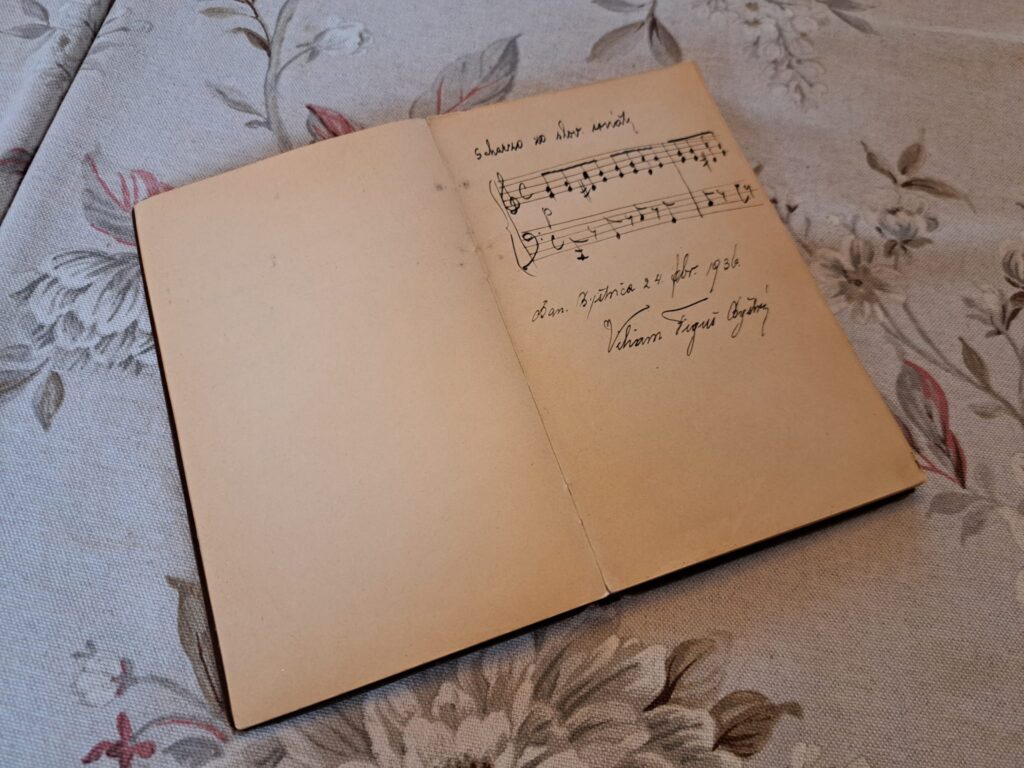 Scherzo zo slov. sonáty
p
Ban. Bystrica 24. febr. 1936.
Viliam Figuš Bystrý